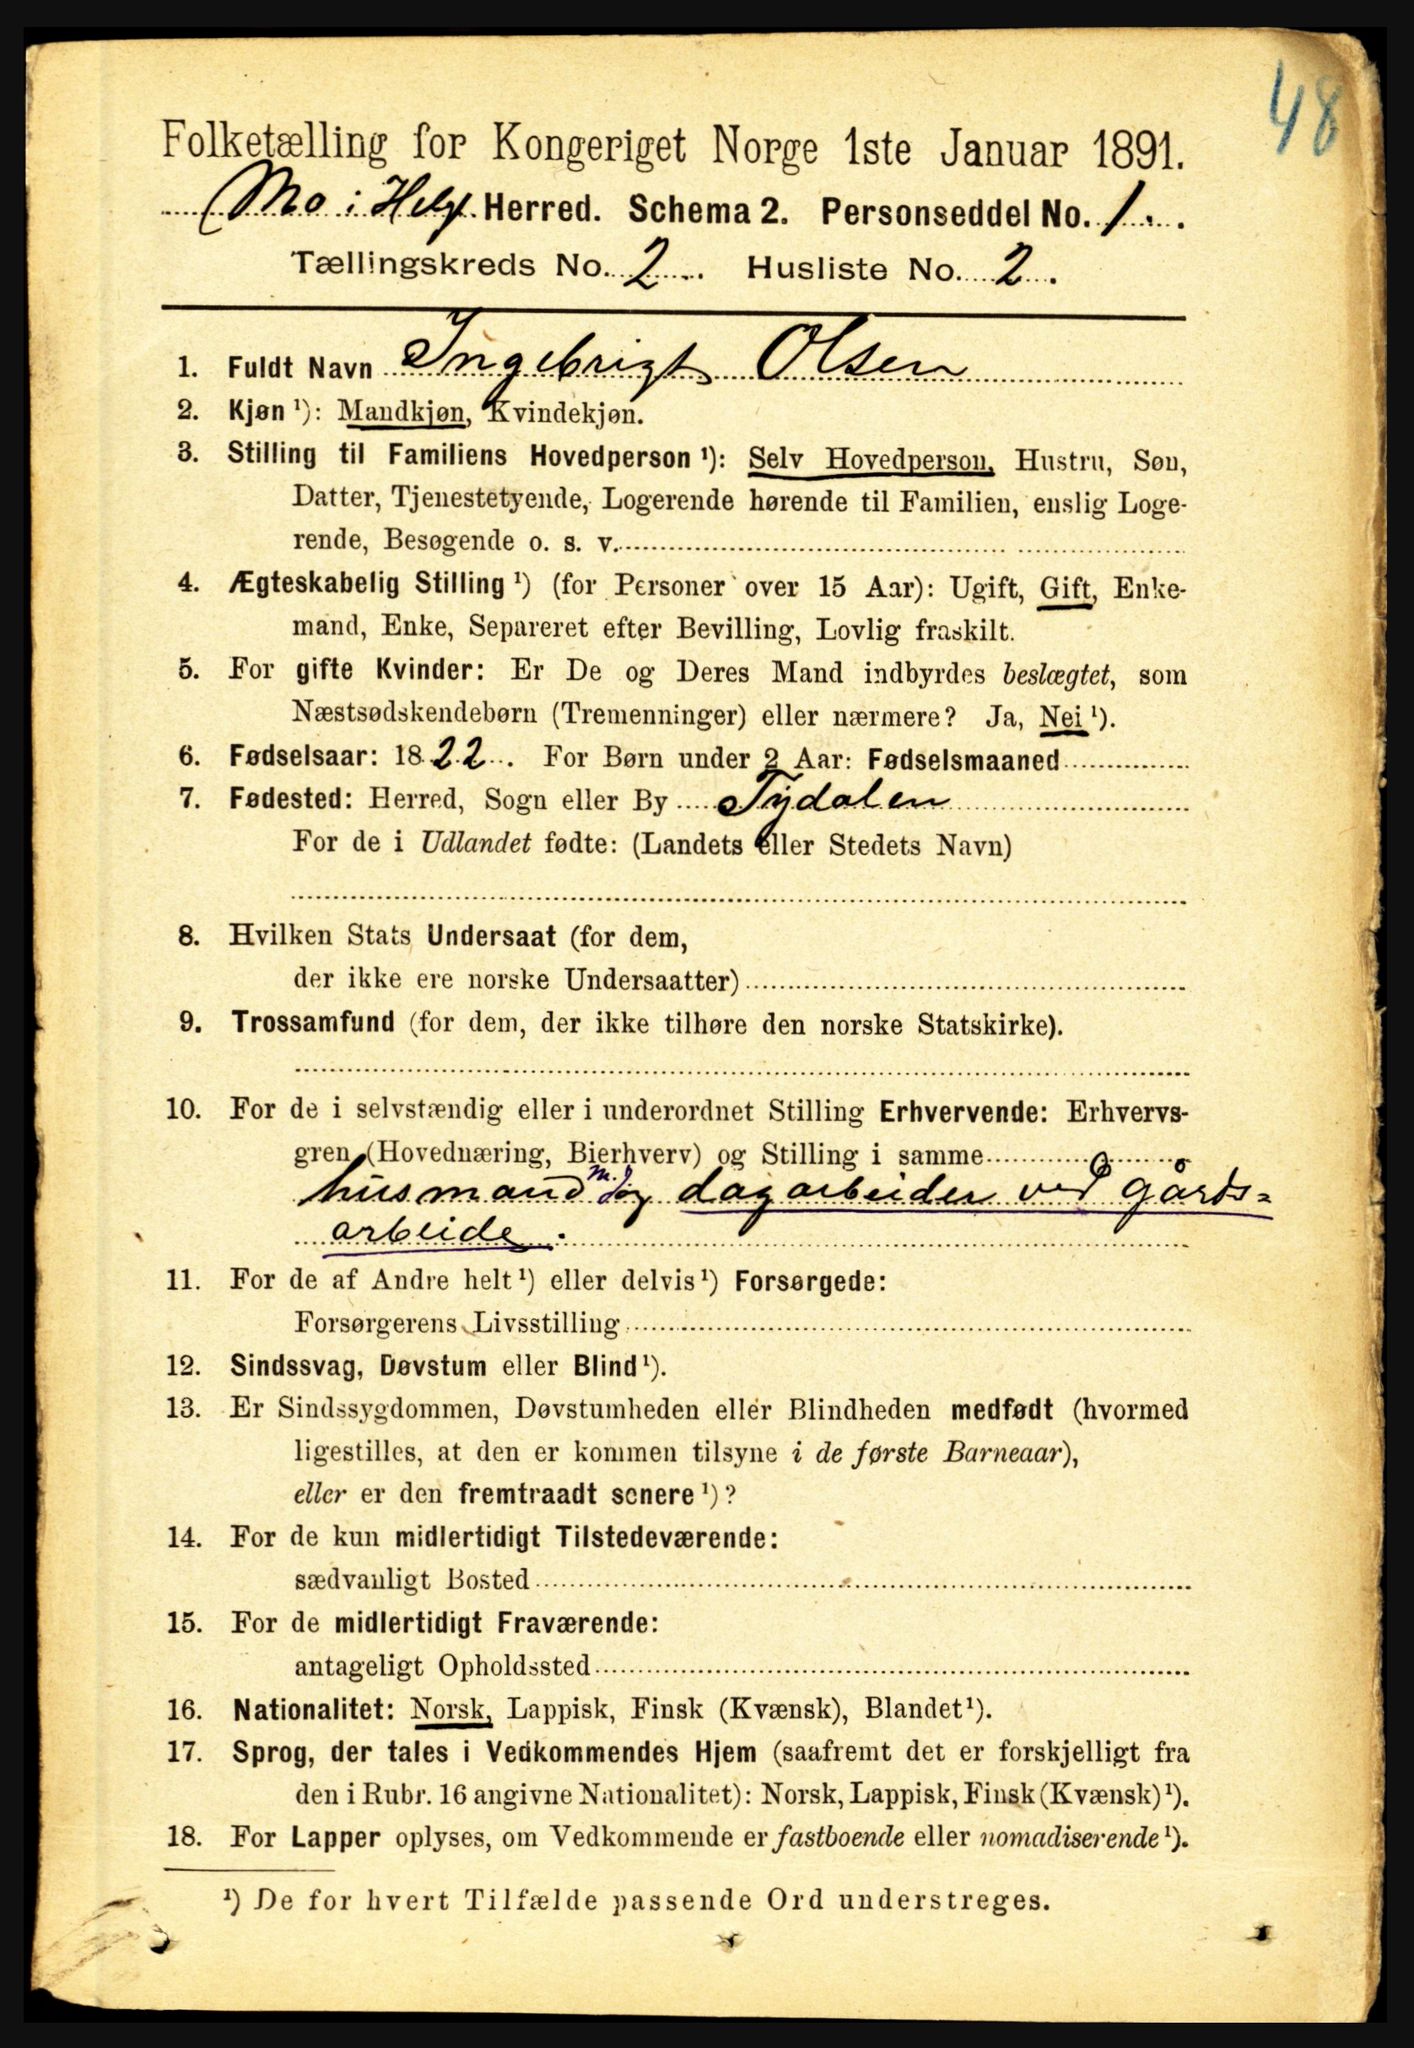 48
Folketælling for Kongeriget Norge 1ste Januar 1891.
Mo i Helgl. Herred. Schema 2. Personseddel No. 1.
Tællingskreds No. 2. Husliste No. 2.
1. Fuldt Navn Ingebrigt Olsen
2. Kjøn ¹): Mandkjøn, Kvindekjøn.
3. Stilling til Familiens Hovedperson ¹): Selv Hovedperson, Hustru, Søn,
Datter, Tjenestetyende, Logerende hørende til Familien, enslig Loge-
rende, Besøgende o. s. v.
4. Ægteskabelig Stilling ¹) (for Personer over 15 Aar): Ugift, Gift, Enke-
mand, Enke, Separeret efter Bevilling, Lovlig fraskilt.
5. For gifte Kvinder: Er De og Deres Mand indbyrdes beslægtet, som
Næstsødskendebørn (Tremenninger) eller nærmere? Ja, Nei ¹).
6. Fødselsaar: 1822. For Børn under 2 Aar: Fødselsmaaned
7. Fødested: Herred, Sogn eller By Tydalen
For de i Udlandet fødte: (Landets eller Stedets Navn)
8. Hvilken Stats Undersaat (for dem,
der ikke ere norske Undersaatter)
9. Trossamfund (for dem, der ikke tilhøre den norske Statskirke).
10. For de i selvstændig eller i underordnet Stilling Erhvervende: Erhvervs-
gren (Hovednæring, Bierhverv) og Stilling i samme
husmand m. j. og dagarbeider ved gårds-
arbeide.
11. For de af Andre helt ¹) eller delvis ¹) Forsørgede:
Forsørgerens Livsstilling
12. Sindssvag, Døvstum eller Blind ¹).
13. Er Sindssygdommen, Døvstumheden eller Blindheden medfødt (hvormed
ligestilles, at den er kommen tilsyne i de første Barneaar),
eller er den fremtraadt senere ¹)?
14. For de kun midlertidigt Tilstedeværende:
sædvanligt Bosted
15. For de midlertidigt Fraværende:
antageligt Opholdssted
16. Nationalitet: Norsk, Lappisk, Finsk (Kvænsk), Blandet ¹).
17. Sprog, der tales i Vedkommendes Hjem (saafremt det er forskjelligt fra
den i Rubr. 16 angivne Nationalitet): Norsk, Lappisk, Finsk (Kvænsk) ¹).
18. For Lapper oplyses, om Vedkommende er fastboende eller nomadiserende ¹).
¹) De for hvert Tilfælde passende Ord understreges.